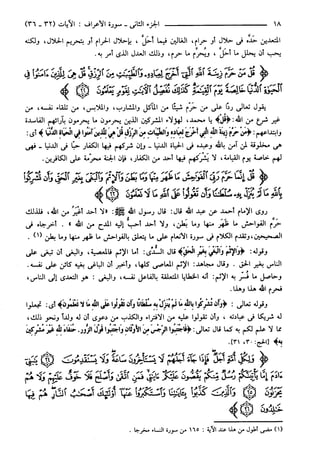 ١٨ الجزء الثانى - سورة الأعراف : الآيات (٣٢ - ٣٦)
المتعدين حَدَّه فى حلال أو حرام، الغالين فيما أحَلَّ ، بإحلال الحرام أو بتحريم الحلال، ولكنه
يحب أن يحلل ما أَحَلَّ ، ويُحَرِّم ما حرم، وذلك العدل الذى أمر به.
قُلْ مَنْ حَرَّمَ زِينَةَ اللَّهِ الَّتِي أَخْرَجَ لِعِبَادِهِ وَالطَّيِّبَاتِ مِنَ الرِّزْقِ قُلْ هِيَ لِلَّذِينَ ءَامَنُوا فِي
الْحَيَاةِ الدُّنْيَا خَالِصَةً يَوْمَ الْقِيَامَةِ كَذَلِكَ نُفَصِّلُ الْآيَاتِ لِقَوْمٍ يَعْلَمُونَ ﴿٣٢﴾
يقول تعالى ردًّا على من حَرَّم شيئًا من المآكل والمشارب، والملابس، من تلقاء نفسه، من
غير شرع من الله: ﴿قُلْ﴾ يا محمد، لهؤلاء المشركين الذين يحرمون ما يحرمون بآرائهم الفاسدة
وابتداعهم: ﴿مَنْ حَرَّمَ زِينَةَ اللَّهِ الَّتِي أَخْرَجَ لِعِبَادِهِ وَالطَّيِّبَاتِ مِنَ الرِّزْقِ قُلْ هِيَ لِلَّذِينَ آمَنُوا فِي الْحَيَاةِ الدُّنْيَا﴾ أى:
هى مخلوقة لمن آمن بالله وعبده فى الحياة الدنيا - وإن شركهم فيها الكفار حبًّا فى الدنيا - فهى
لهم خاصة يوم القيامة، لا يَشْركهم فيها أحد من الكفار، فإن الجنة محرمة على الكافرين.
قُلْ إِنَّمَا حَرَّمَ رَبِّيَ الْفَوَاحِشَ مَا ظَهَرَ مِنْهَا وَمَا بَطَنَ وَالْإِثْمَ وَالْبَغْيَ بِغَيْرِ الْحَقِّ وَأَن تُشْرِكُوا
بِاللَّهِ مَا لَمْ يُنَزِّلْ بِهِ سُلْطَانًا وَأَن تَقُولُوا عَلَى اللَّهِ مَا لَا تَعْلَمُونَ ﴿٣٣﴾
روى الإمام أحمد عن عبد الله قال: قال رسول الله ﷺ: «لا أحد أغير من الله، فلذلك
حرم الفواحش ما ظَهَر منها وما بَطن، ولا أحد أحب إليه المدح من الله» . أخرجاه فى
الصحيحين، وتقدم الكلام فى سورة الأنعام على ما يتعلق بالفواحش ما ظهر منها وما بطن (١) .
وقوله: ﴿وَالإِثْمَ وَالْبَغْيَ بِغَيْرِ الْحَقِّ﴾ قال السُّدِّى: أما الإثم فالمعصية، والبغى أن تبغى على
الناس بغير الحق . وقال مجاهد: الإثم المعاصى كلها، وأخبر أن الباغى بغيه كائن على نفسه.
وحاصل ما فُسر به الإثم: أنه الخطايا المتعلقة بالفاعل نفسه، والبغى: هو التعدى إلى الناس،
فحرم الله هذا وهذا.
وقوله تعالى : ﴿وَأَن تُشْرِكُوا بِاللَّهِ مَا لَمْ يُنَزِّلْ بِهِ سُلْطَانًا وَأَن تَقُولُوا عَلَى اللَّهِ مَا لا تَعْلَمُونَ﴾ أى: تجعلوا
له شريكا فى عبادته ، وأن تقولوا عليه من الافتراء والكذب من دعوى أن له ولداً ونحو ذلك،
مما لا علم لكم به كما قال تعالى: ﴿فَاجْتَنِبُوا الرِّجْسَ مِنَ الأَوْثَانِ وَاجْتَنِبُوا قَوْلَ الزُّورِ. حُنَفَاءَ لِلَّهِ غَيْرَ مُشْرِكِينَ
بِهِ﴾ [الحج: ٣٠، ٣١].
وَلِكُلِّ أُمَّةٍ أَجَلٌ فَإِذَا جَاءَ أَجَلُهُمْ لَا يَسْتَأْخِرُونَ سَاعَةً وَلَا يَسْتَقْدِمُونَ ﴿٣٤﴾ يَا بَنِي ءَادَمَ
إِمَّا يَأْتِيَنَّكُمْ رُسُلٌ مِّنكُمْ يَقُصُّونَ عَلَيْكُمْ ءَايَاتِي فَمَنِ اتَّقَى وَأَصْلَحَ فَلَا خَوْفٌ عَلَيْهِمْ وَلَا هُمْ
يَحْزَنُونَ ﴿٣٥﴾ وَالَّذِينَ كَذَّبُوا بِآيَاتِنَا وَاسْتَكْبَرُوا عَنْهَا أُولَئِكَ أَصْحَابُ النَّارِ هُمْ فِيهَا
خَالِدُونَ ﴿٣٦﴾
(١) مضى أطول من هذا عند الآية : ١٦٥ من سورة النساء مخرجا .